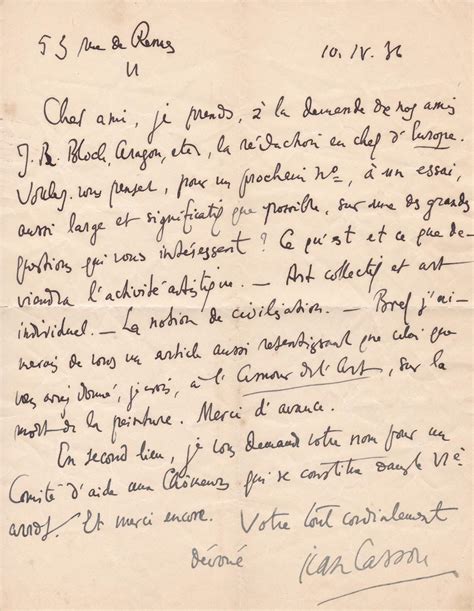 53 rue de Rennes 10. IV. 36
VI
Cher ami, je prends, à la demande de nos amis
J. R. Bloch, Aragon, etc., la rédaction en chef d'Europe.
Voulez-vous penser, pour un prochain nº, à un essai,
aussi large et significatif que possible, sur une des grandes
questions qui vous intéressent ? Ce qu'est et ce que de-
viendra l'activité artistique. — Art collectif et art
individuel. — La notion de civilisation. — Bref j'ai-
merais de vous un article aussi retentissant que celui que
vous avez donné, jadis, à l'Amour de l'Art, sur la
mort de la peinture. Merci d'avance.
En second lieu, je vous demande votre nom pour un
Comité d'aide aux Chômeurs qui se constitue dans le VIe
arrdt. Et merci encore. Votre tout cordialement
dévoué Jean Cassou